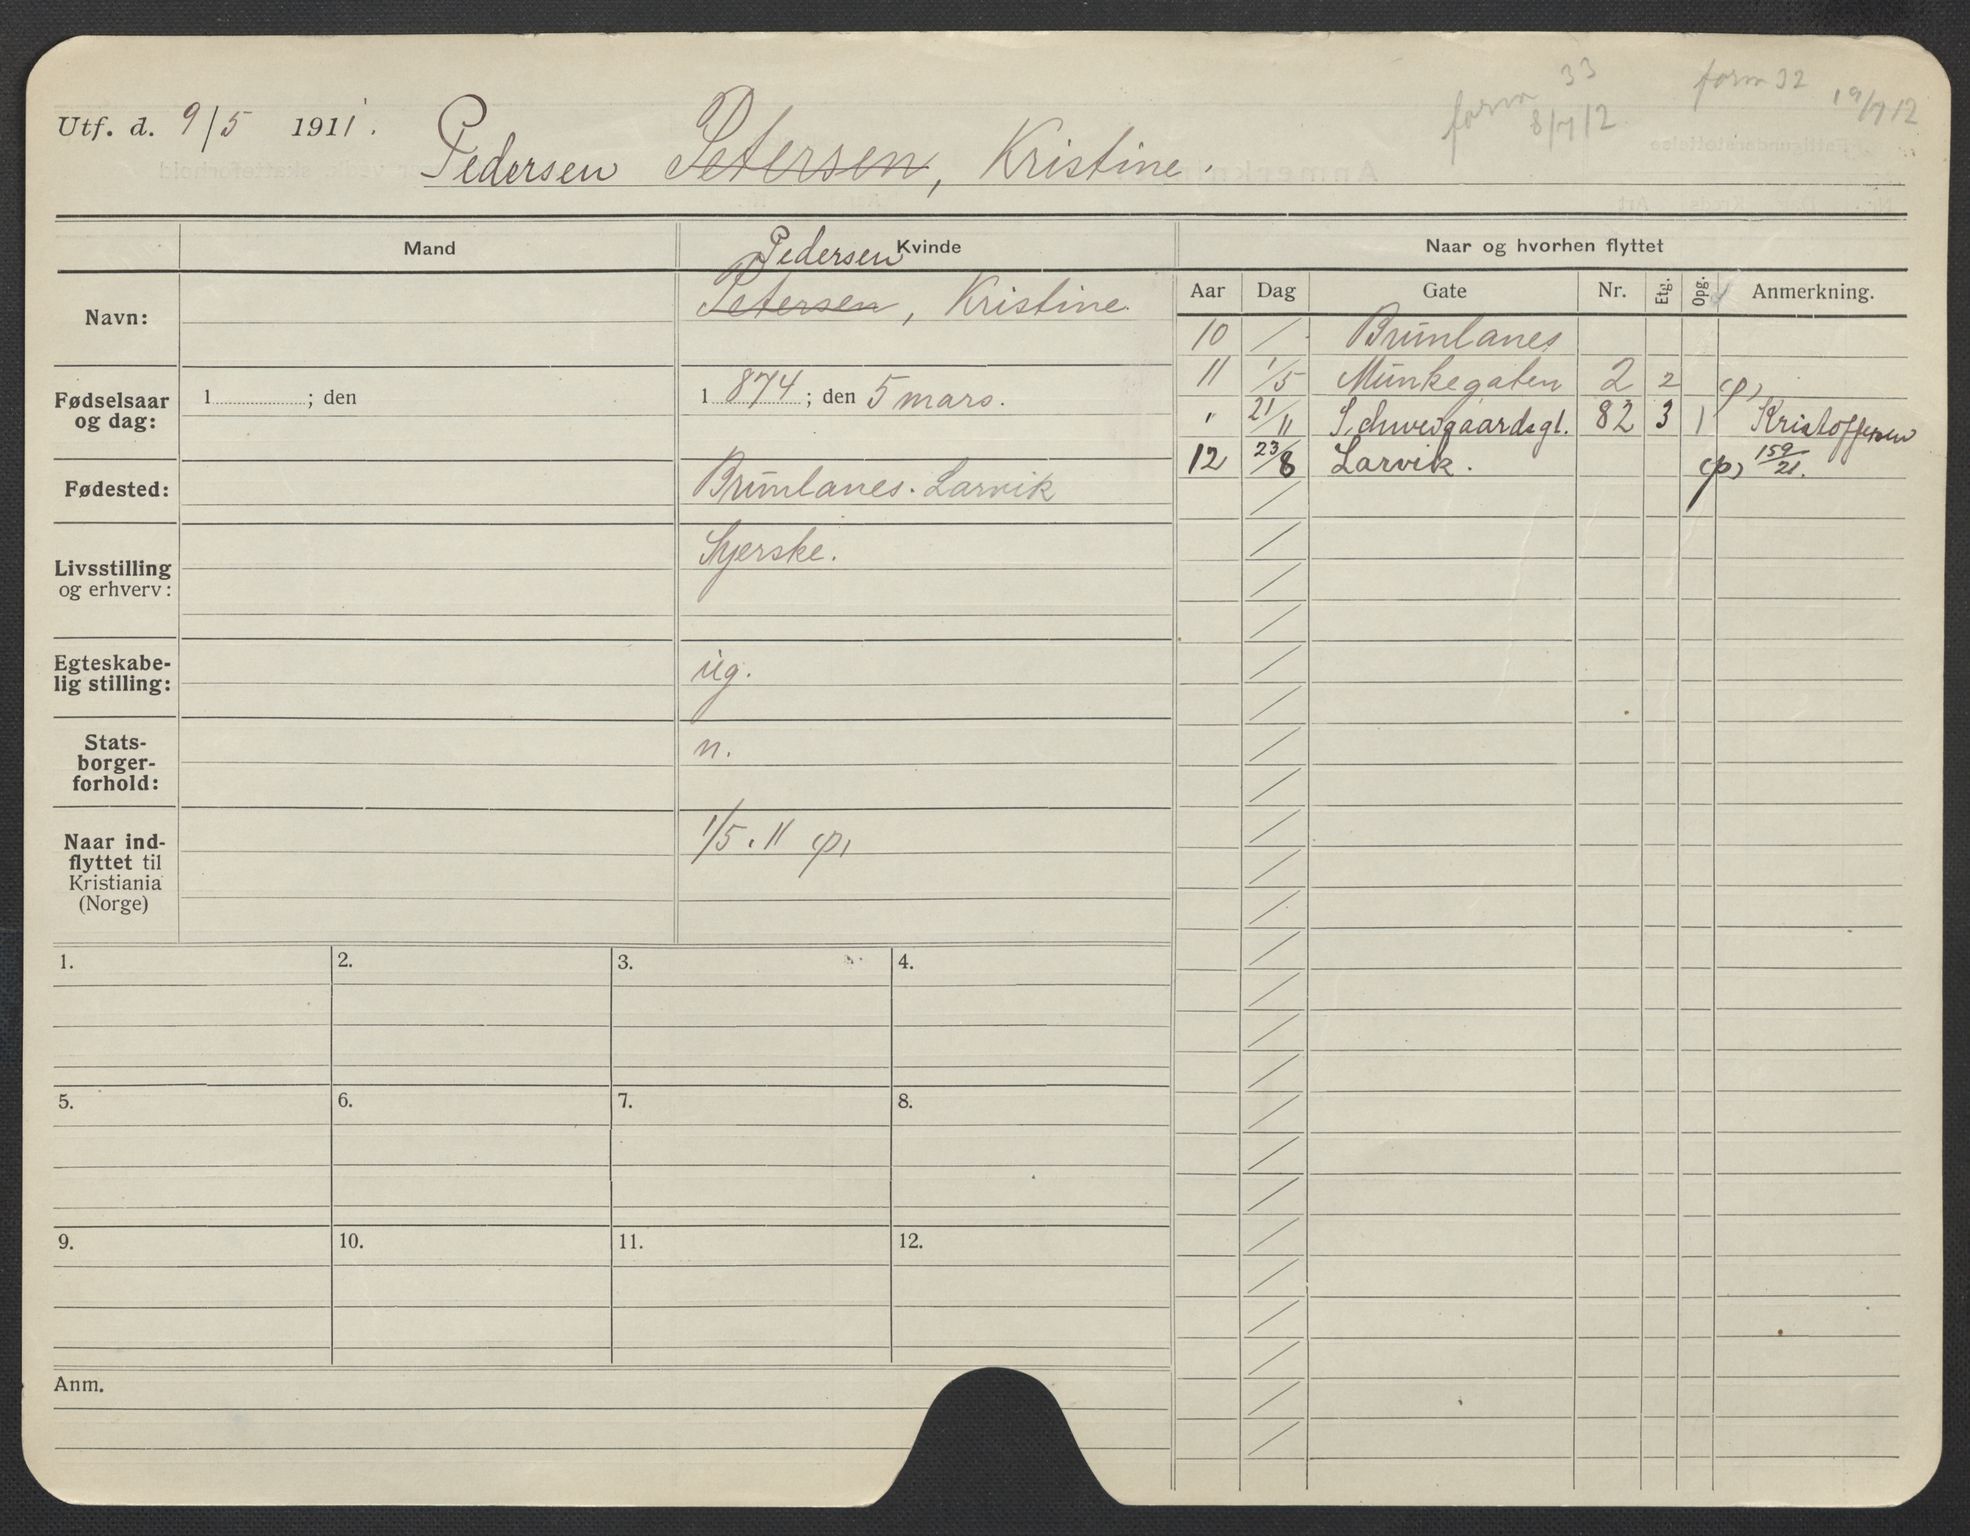 form 33 form 32 19/7 12
8/7 12
Utf. d. 9/5 1911. Pedersen Petersen, Kristine.
Mand Pedersen Kvinde Naar og hvorhen flyttet
Navn: Petersen, Kristine.
Aar Dag Gate Nr. Etg. Opg. Anmerkning.
10 / Brunlanes
11 1/5 Munkegaten 2 2 (p)
" 21/11 Schweigaardsgt. 82 3 1 Kristoffersen
12 23/8 Larvik. (p) 159/21.
Fødselsaar og dag: 1 ; den 1 874 ; den 5 mars.
Fødested: Brunlanes. Larvik
Livsstilling og erhverv: Syerske.
Egteskabe-
lig stilling: ug.
Stats-
borger-
forhold: n.
Naar ind-
flyttet til
Kristiania
(Norge) 1/5. 11 (p)
1. 2. 3. 4.
5. 6. 7. 8.
9. 10. 11. 12.
Anm.